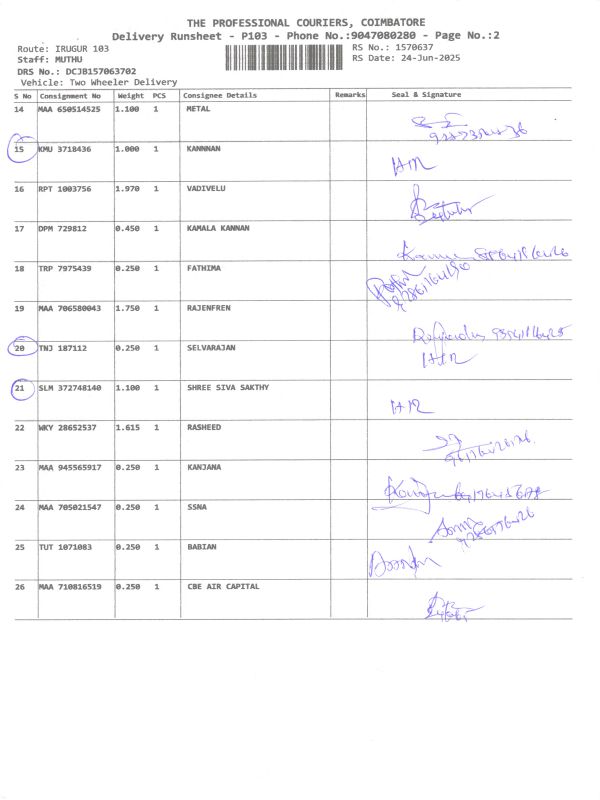 THE PROFESSIONAL COURIERS, COIMBATORE
Delivery Runsheet - P103 - Phone No.:9047080280 - Page No.:2
Route: IRUGUR 103 RS No.: 1570637
Staff: MUTHU RS Date: 24-Jun-2025
DRS No.: DCJB157063702
Vehicle: Two Wheeler Delivery
S No Consignment No Weight PCS Consignee Details Remarks Seal & Signature
14 MAA 650514525 1.100 1 METAL
15 KMU 3718436 1.000 1 KANNNAN
16 RPT 1003756 1.970 1 VADIVELU
17 DPM 729812 0.450 1 KAMALA KANNAN
18 TRP 7975439 0.250 1 FATHIMA
19 MAA 706580043 1.750 1 RAJENFREN
20 TNJ 187112 0.250 1 SELVARAJAN
21 SLM 372748140 1.100 1 SHREE SIVA SAKTHY
22 WKY 28652537 1.615 1 RASHEED
23 MAA 945565917 0.250 1 KANJANA
24 MAA 705021547 0.250 1 SSNA
25 TUT 1071083 0.250 1 BABIAN
26 MAA 710816519 0.250 1 CBE AIR CAPITAL